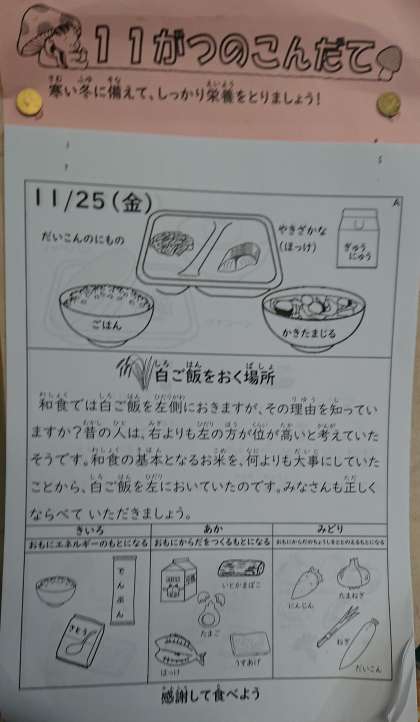 11がつのこんだて
寒い冬に備えて、しっかり栄養をとりましょう!
11/25(金)
A
だいこんのにもの
やきざかな
(ほっけ)
ぎゅう
にゅう
ごはん
かきたまじる
白ご飯をおく場所
和食では白ご飯を左側におきますが、その理由を知ってい
ますか?昔の人は、右よりも左の方が位が高いと考えていた
そうです。和食の基本となるお米を、何よりも大事にしていた
ことから、白ご飯を左においていたのです。みなさんも正しく
ならべて いただきましょう。
きいろ
あか
みどり
おもにエネルギーのもとになる
おもにからだをつくるもとになる
おもにからだのちょうしをととのえるもとになる
でんぷん
さとう
いとかまぼこ
たまご
ほっけ
うすあげ
にんじん
たまねぎ
ねぎ
だいこん
感謝して食べよう